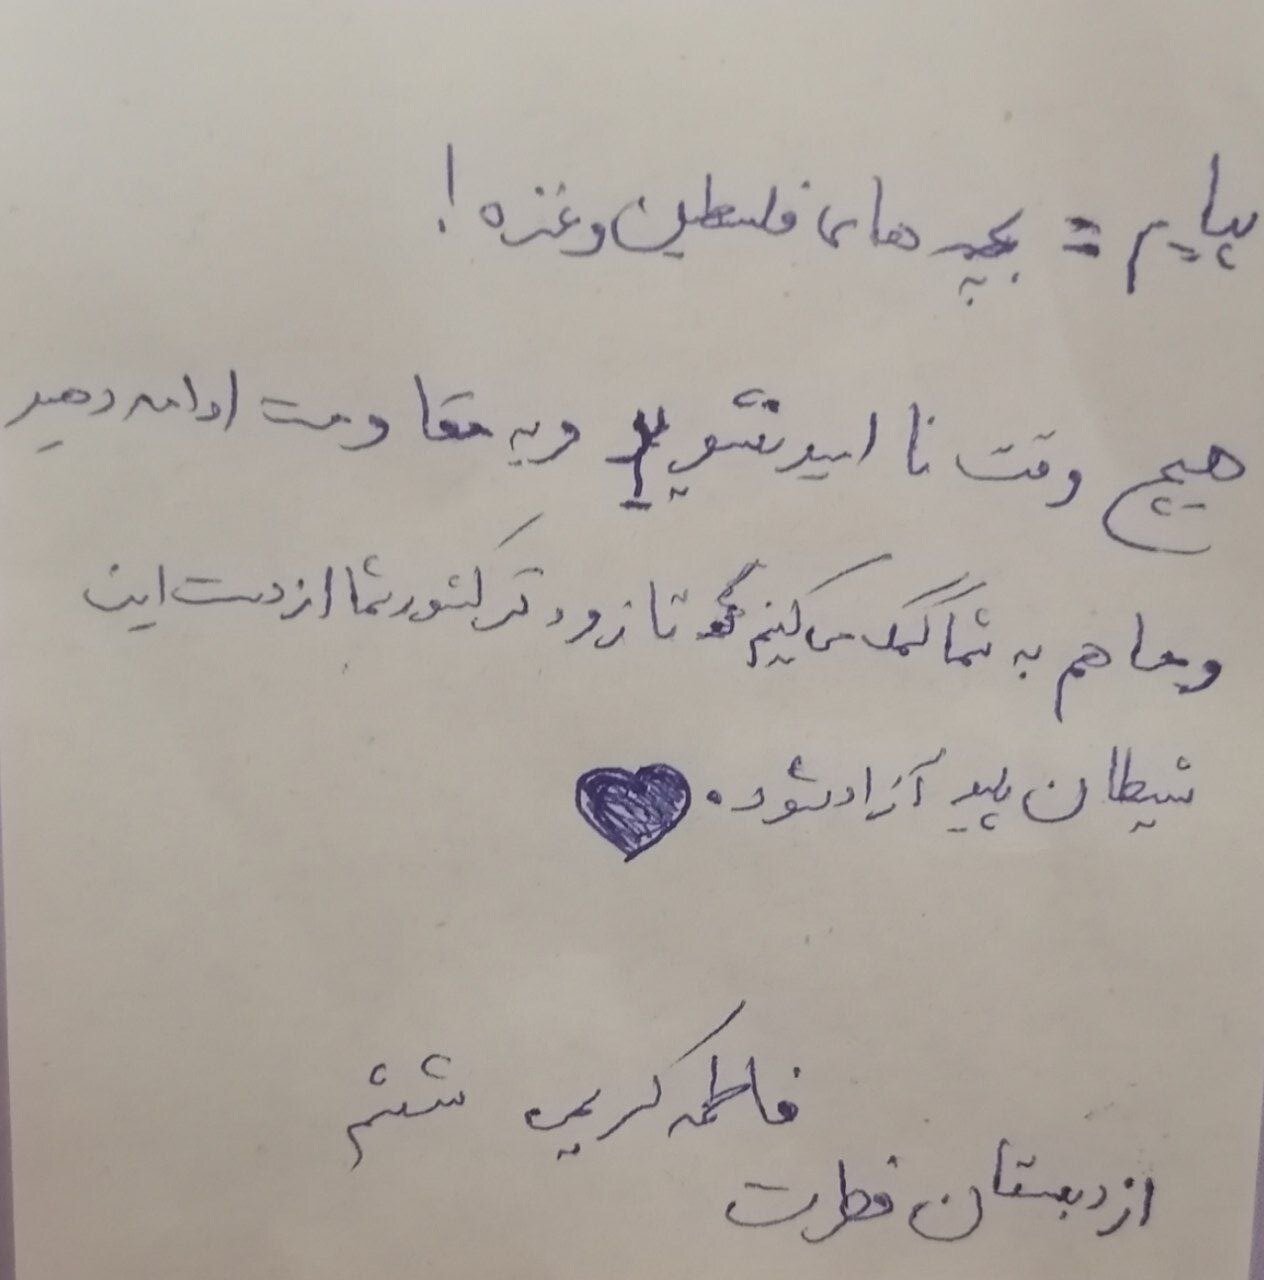 پیام = بچه های فلسطین و غزه !
هیچ وقت نا امید نشوید و به مقاومت ادامه دهید
و ما هم به شما کمک می کنیم تا زود تر کشور شما از دست این
شیطان پلید آزاد شود.
فاطمه کریمی ششم
از دبستان فطرت